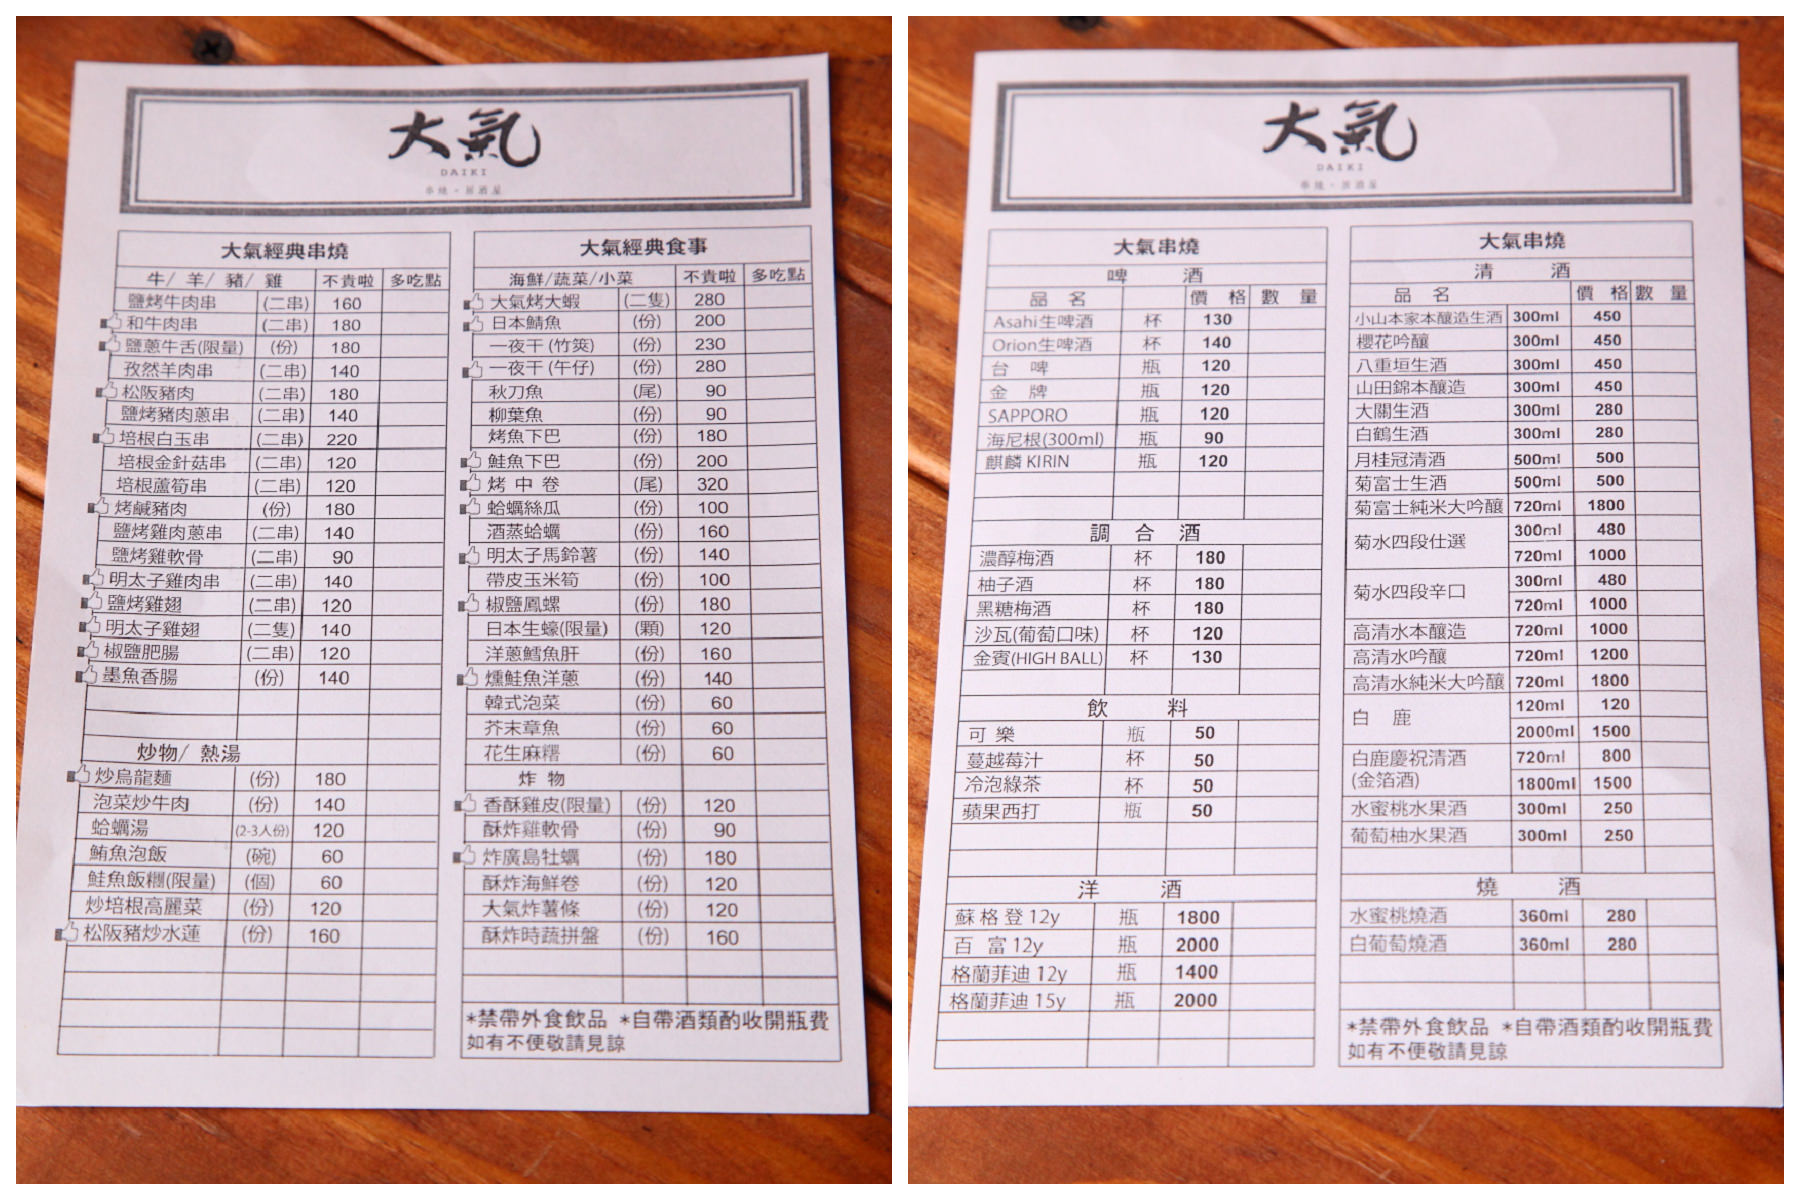 大氣
DAIKI
串燒・居酒屋
大氣經典串燒
牛/ 羊/ 豬/ 雞 不貴啦 多吃點
鹽烤牛肉串 (二串) 160
和牛肉串 (二串) 180
鹽蔥牛舌(限量) (份) 180
孜然羊肉串 (二串) 140
松阪豬肉 (二串) 180
鹽烤豬肉蔥串 (二串) 140
培根白玉串 (二串) 220
培根金針菇串 (二串) 120
培根蘆筍串 (二串) 120
烤鹹豬肉 (份) 180
鹽烤雞肉蔥串 (二串) 140
鹽烤雞軟骨 (二串) 90
明太子雞肉串 (二串) 140
鹽烤雞翅 (二串) 120
明太子雞翅 (二隻) 140
椒鹽肥腸 (二串) 120
墨魚香腸 (份) 140
炒物/ 熱湯
炒烏龍麵 (份) 180
泡菜炒牛肉 (份) 140
蛤蠣湯 (2-3人份) 120
鮪魚泡飯 (碗) 60
鮭魚飯糰(限量) (個) 60
炒培根高麗菜 (份) 120
松阪豬炒水蓮 (份) 160
大氣經典食事
海鮮/蔬菜/小菜 不貴啦 多吃點
大氣烤大蝦 (二隻) 280
日本鯖魚 (份) 200
一夜干 (竹筴) (份) 230
一夜干 (午仔) (份) 280
秋刀魚 (尾) 90
柳葉魚 (份) 90
烤魚下巴 (份) 180
鮭魚下巴 (份) 200
烤 中 卷 (尾) 320
蛤蠣絲瓜 (份) 100
酒蒸蛤蠣 (份) 160
明太子馬鈴薯 (份) 140
帶皮玉米筍 (份) 100
椒鹽鳳螺 (份) 180
日本生蠔(限量) (顆) 120
洋蔥鱈魚肝 (份) 160
燻鮭魚洋蔥 (份) 140
韓式泡菜 (份) 60
芥末章魚 (份) 60
花生麻糬 (份) 60
炸 物
香酥雞皮(限量) (份) 120
酥炸雞軟骨 (份) 90
炸廣島牡蠣 (份) 180
酥炸海鮮卷 (份) 120
大氣炸薯條 (份) 120
酥炸時蔬拼盤 (份) 160
*禁帶外食飲品 *自帶酒類酌收開瓶費
如有不便敬請見諒
大氣
DAIKI
串燒・居酒屋
大氣串燒
啤 酒
品 名 價 格 數 量
Asahi生啤酒 杯 130
Orion生啤酒 杯 140
台 啤 瓶 120
金 牌 瓶 120
SAPPORO 瓶 120
海尼根(300ml) 瓶 90
麒麟 KIRIN 瓶 120
調 合 酒
濃醇梅酒 杯 180
柚子酒 杯 180
黑糖梅酒 杯 180
沙瓦(葡萄口味) 杯 120
金賓(HIGH BALL) 杯 130
飲 料
可 樂 瓶 50
蔓越莓汁 杯 50
冷泡綠茶 杯 50
蘋果西打 瓶 50
洋 酒
蘇 格 登 12y 瓶 1800
百 富 12y 瓶 2000
格蘭菲迪 12y 瓶 1400
格蘭菲迪 15y 瓶 2000
大氣串燒
清 酒
品 名 價 格 數 量
小山本家本釀造生酒 300ml 450
櫻花吟釀 300ml 450
八重垣生酒 300ml 450
山田錦本釀造 300ml 450
大關生酒 300ml 280
白鶴生酒 300ml 280
月桂冠清酒 500ml 500
菊富士生酒 500ml 500
菊富士純米大吟釀 720ml 1800
菊水四段仕選 300ml 480
720ml 1000
菊水四段辛口 300ml 480
720ml 1000
高清水本釀造 720ml 1000
高清水吟釀 720ml 1200
高清水純米大吟釀 720ml 1800
白 鹿 120ml 120
2000ml 1500
白鹿慶祝清酒 720ml 800
(金箔酒) 1800ml 1500
水蜜桃水果酒 300ml 250
葡萄柚水果酒 300ml 250
燒 酒
水蜜桃燒酒 360ml 280
白葡萄燒酒 360ml 280
*禁帶外食飲品 *自帶酒類酌收開瓶費
如有不便敬請見諒